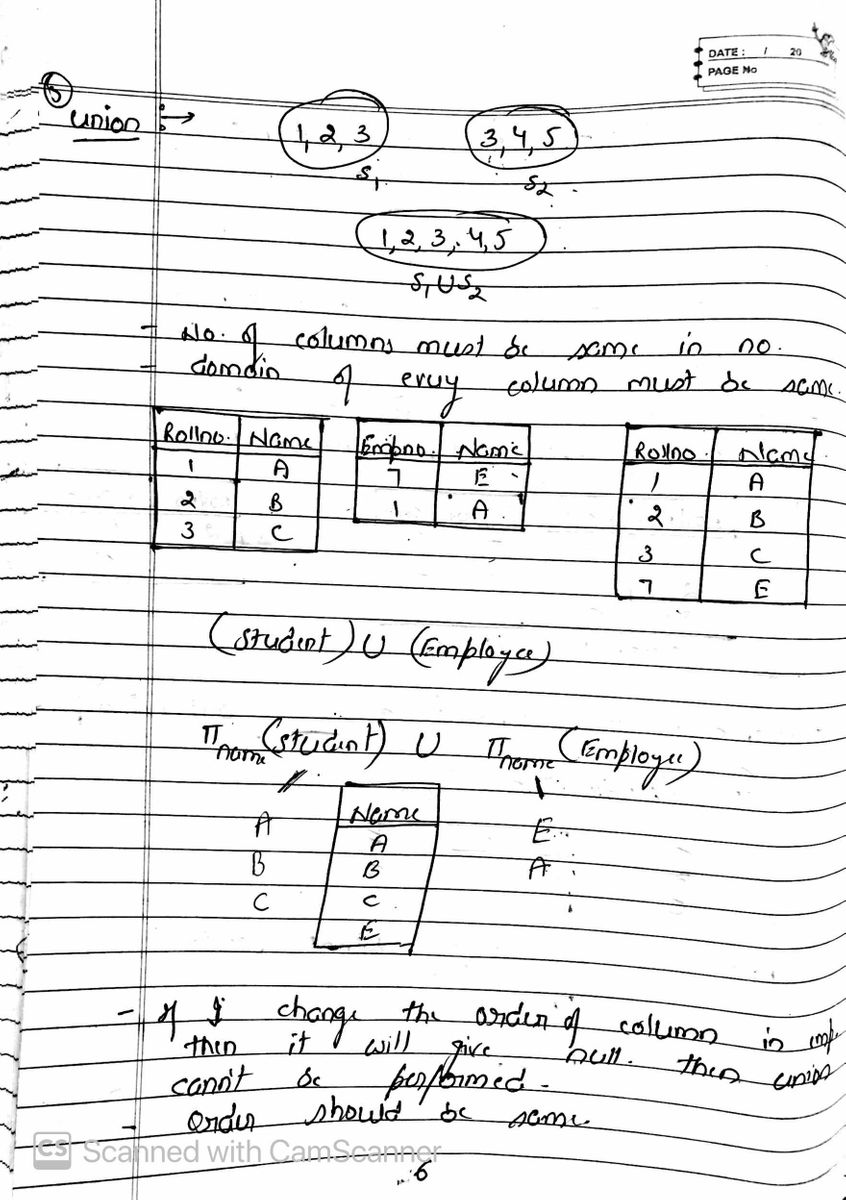 DATE: / 20
PAGE No
5
union →
1, 2, 3
3, 4, 5
S1
S2
1, 2, 3, 4, 5
S1 U S2
- No. of columns must be same in no.
- domain of every column must be same.
Rollno. Name
1 A
2 B
3 C
Empno. Name
7 E
1 A
Rollno Name
1 A
2 B
3 C
7 E
(Student) U (Employee)
πname (Student) U πname (Employee)
A
B
C
Name
A
B
C
E
E
A
- If I change the order of column in emp
then it will give null. then union
cann't be performed.
- Order should be same.
CS Scanned with CamScanner
6